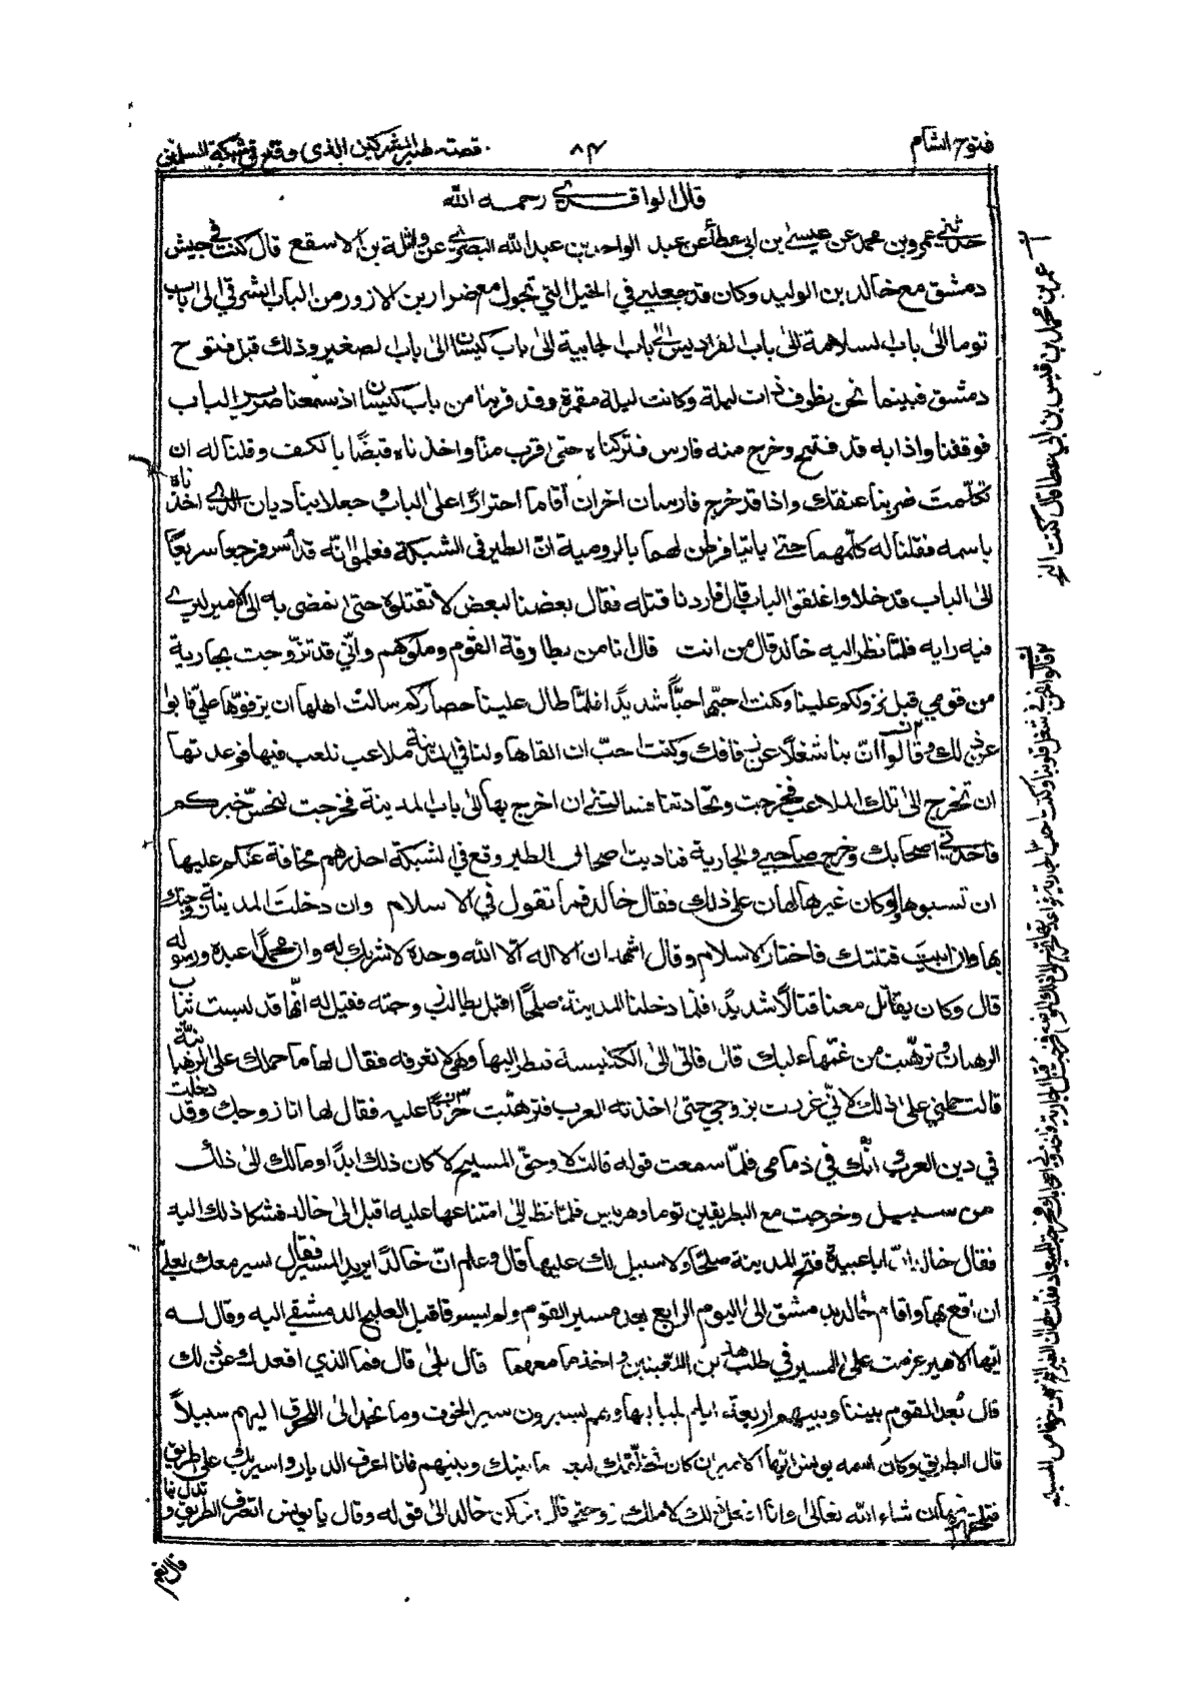 فتوح الشام
٨٤
قصة طير المشركين الذي وقع في شبكة المسلمين
قال الواقدي رحمه الله
حدثني عمرو بن محمد عن عيسى بن ابي عطاء عن عبد الواحد بن عبد الله البصري عن واثلة بن الاسقع قال كنت في جيش
دمشق مع خالد بن الوليد وكان قد جعلني في الخيل التي تجول مع ضرار بن الازور من الباب الشرقي الى باب
توما الى باب السلامة الى باب الفراديس الى باب الجابية الى باب كيسان الى باب الصغير وذلك قبل فتوح
دمشق فبينما نحن نطوف ذات ليلة وكانت ليلة مقمرة وقد قربنا من باب كيسان اذ سمعنا صرير الباب
فوقفنا واذا به قد فتح وخرج منه فارس فتركناه حتى قرب منا واخذناه قبضًا بالكف وقلنا له ان
تكلّمتَ ضربنا عنقك واذا قد خرج فارسان اخران أقاما احترازًا على الباب وجعلا يناديان الذي اخذناه
باسمه فقلنا له كلّمهما حتى ياتيا فرطن لهما بالرومية انّ الطير في الشبكة فعلموا انّه قد أسر فرجعا سريعًا
الى الباب قد خلا واغلقوا الباب قال فاردنا قتله فقال بعضنا لبعض لا تقتلوه حتى نمضي به الى الامير ليرى
فيه رايه فلمّا نظر اليه خالد قال من انت قال انا من بطارقة القوم وملوكهم وانّي قد تزوّجت بجارية
من قومي قبل نزولكم علينا وكنت احبّها حبًّا شديدًا فلمّا طال علينا حصاركم سالت اهلها ان يزفّوها عليّ فابوا
عن ذلك وقالوا انّ بنا شغلًا عن زفافك وكنت احبّ ان القاها ولنا في المدينة ملاعب نلعب فيها فوعدتها
ان تخرج الى تلك الملاعب فخرجت وتحادثنا فسالتني ان اخرج بها الى باب المدينة فخرجت لنجسّ خبركم
فاخذني اصحابك وخرج صاحبي والجارية فناديت اصحابي الطير وقع في الشبكة احذرهم مخافة عنكم عليها
ان تسبوها ولو كان غيرها لهان علي ذلك فقال خالد فما تقول في الاسلام وان دخلتَ المدينة زوجتك
بها وان ابيت قتلتك فاختار الاسلام وقال اشهد ان لا اله الا الله وحدة لا شريك له وان محمدًا عبده ورسوله
قال وكان يقاتل معنا قتالًا شديدًا فلمّا دخلنا المدينة صلحًا اقبل يطالب زوجته فقيل له انّها قد لبست ثياب
الرهبان وترهّبت من غمّها عليك قال فاتى الى الكنيسة فنظر اليها وهي لا تعرفه فقال لها ما حملك على الرهبانيّة
قالت حملني على ذلك لانّي غررت بزوجي حتى اخذته العرب فترهّبت حزنًا عليه فقال لها انا زوجك وقد دخلت
في دين العرب وانّك في ذمامي فلمّا سمعت قوله قالت لا وحق المسيح لا كان ذلك ابدًا وما لك الى ذلك
من سبيل وخرجت مع البطريقين توما وهربيس فلمّا نظر الى امتناعها عليه اقبل الى خالد فشكا ذلك اليه
فقال خالد انّ ابا عبيدة فتح المدينة صلحًا ولا سبيل لك عليها قال وعلم انّ خالدًا يريد المسير فقال اسير معك لعلّي
ان اقع بها واقام خالد بدمشق الى اليوم الرابع بعد مسير القوم ولم يسير فاقبل العليج الدمشقي اليه وقال له
ايّها الامير عزمت على المسير في طلب هذين اللعينين واخذ ما معهما قال بلى قال فما الذي اقعدك عن ذلك
قال بُعد القوم بيننا وبينهم اربعة ايام بلياليها وهم يسيرون سير الخوف وما نجد الى اللحوق اليهم سبيلًا
قال البطريق وكان اسمه يونس ايّها الامير ان كان تخلّفك لبعد ما بينك وبينهم فانا اعرف الديار واسير بك على طريق
فتلحق بهم ان شاء الله تعالى وانا افعل ذلك لاملك زوجتي قال فركن خالد الى قوله وقال يا يونس اتعرف الطريق و تدلّ بنا
قال نعم
عمر بن محمد بن قيس بن ابي عطا قال كنت الخ